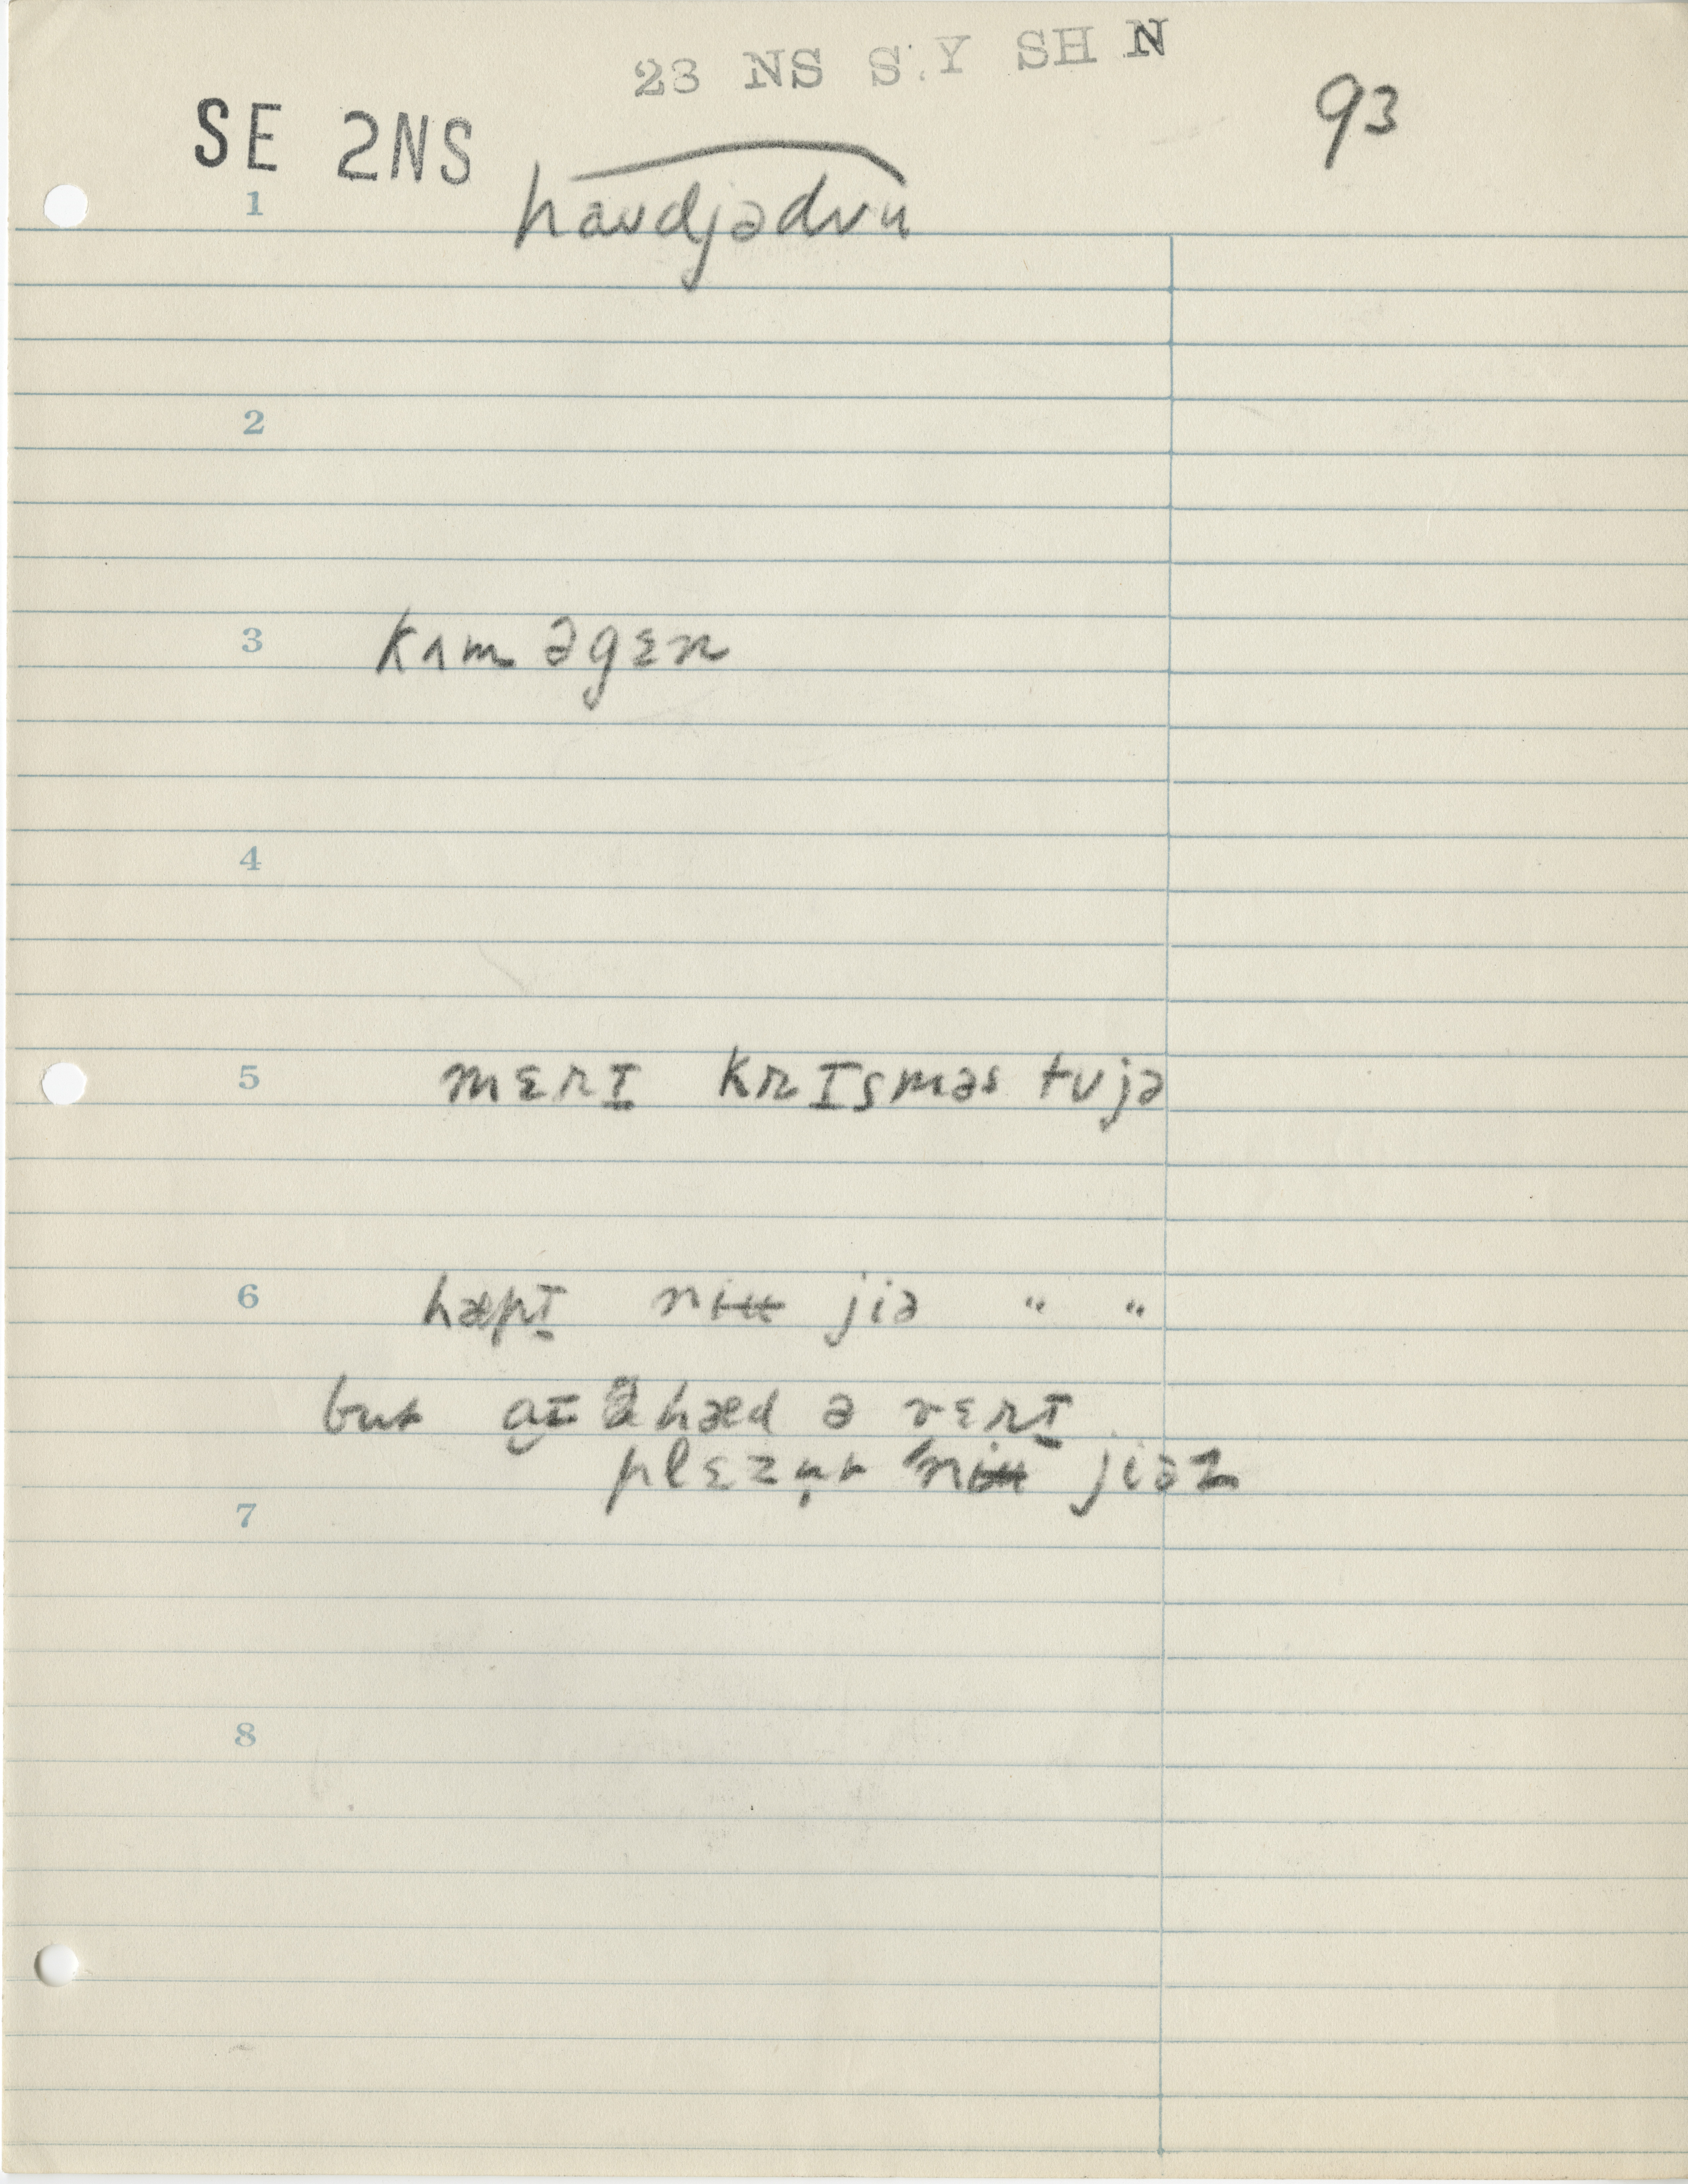 23 NS S Y SH N
93
SE 2NS
1 haʊdjədʊu
2
3 kʌm əgɛn
4
5 mɛrɪ krɪsməs tʊjə
6 hæpɪ jiə " "
but hæd ə vɛrɪ
plɛzn̩t jiəz
7
8